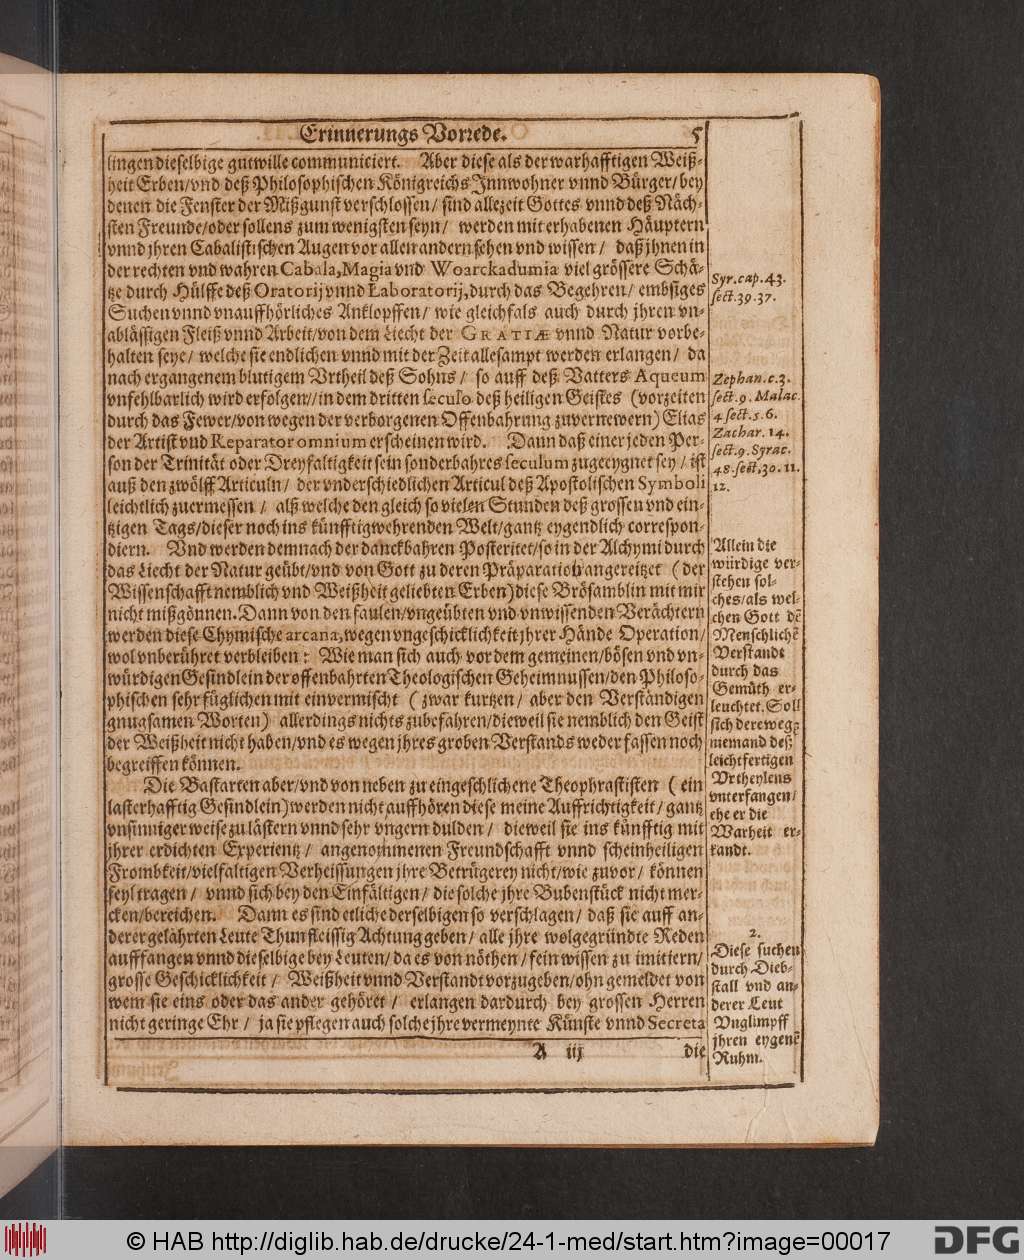 Erinnerungs Vorrede. 5
lingen dieselbige gutwille communiciert. Aber diese als der warhafftigen Weiß-
heit Erben/vnd deß Philosophischen Königreichs Innwohner vnnd Bürger/bey
denen die Fenster der Mißgunst verschlossen/ sind allezeit Gottes vnnd deß Näch-
sten Freunde/oder sollens zum wenigsten seyn/ werden mit erhabenen Häuptern
vnnd jhren Cabalistischen Augen vor allen andern sehen vnd wissen/ daß jhnen in
der rechten vnd wahren Cabala, Magia vnd Woarckadumia viel grössere Schä-
tze durch Hülffe deß Oratorij vnnd Laboratorij, durch das Begehren/ embsiges
Suchen vnnd vnauffhörliches Anklopffen/ wie gleichfals auch durch jhren vn-
ablässigen Fleiß vnnd Arbeit/von dem Liecht der GRATIÆ vnnd Natur vorbe-
halten seye/ welche sie endlichen vnnd mit der Zeit allesampt werden erlangen/ da
nach ergangenem blutigem Vrtheil deß Sohns/ so auff deß Vatters Aqueum
vnfehlbarlich wird erfolgen//in dem dritten seculo deß heiligen Geistes (vorzeiten
durch das Fewer/von wegen der verborgenen Offenbahrung zuvernewern) Elias
der Artist vnd Reparator omnium erscheinen wird. Dann daß einer jeden Per-
son der Trinität oder Dreyfaltigkeit sein sonderbahres seculum zugeeygnet sey/ ist
auß den zwölff Articuln/ der vnderschiedlichen Articul deß Apostolischen Symboli
leichtlich zuermessen/ alß welche den gleich so vielen Stunden deß grossen vnd ein-
tzigen Tags/dieser noch ins künfftig wehrenden Welt/gantz eygendlich correspon-
diern. Vnd werden demnach der danckbahren Posteritet/so in der Alchymi durch
das Liecht der Natur geübt/vnd von Gott zu deren Präparation angereitzet (der
Wissenschafft nemblich vnd Weißheit geliebten Erben) diese Brösamblin mit mir
nicht mißgönnen. Dann von den faulen/vngeübten vnd vnwissenden Verächtern
werden diese Chymische arcana, wegen vngeschicklichkeit jhrer Hände Operation/
wol vnberühret verbleiben: Wie man sich auch vor dem gemeinen/bösen vnd vn-
würdigen Gesindlein der offenbahrten Theologischen Geheimnussen/den Philoso-
phischen sehr füglichen mit einvermischt (zwar kurtzen/ aber den Verständigen
gnugsamen Worten) allerdings nichts zubefahren/dieweil sie nemblich den Geist
der Weißheit nicht haben/vnd es wegen jhres groben Verstands weder fassen noch
begreiffen können.
Die Bastarten aber/vnd von neben zu eingeschlichene Theophrastisten (ein
lasterhafftig Gesindlein) werden nicht auffhören diese meine Auffrichtigkeit/gantz
vnsinniger weise zu lästern vnnd sehr vngern dulden/ dieweil sie ins künfftig mit
jhrer erdichten Experientz/ angenommenen Freundschafft vnnd scheinheiligen
Frombkeit/vielfaltigen Verheissungen jhre Betrügerey nicht/wie zuvor/ können
feyl tragen/ vnnd sich bey den Einfältigen/ die solche jhre Bubenstück nicht mer-
cken/bereichen. Dann es sind etliche derselbigen so verschlagen/ daß sie auff an-
derer gelährten Leute Thun fleissig Achtung geben/ alle jhre wolgegründte Reden
aufffangen vnnd dieselbige bey Leuten/ da es von nöthen/ fein wissen zu imitiern/
grosse Geschicklichkeit/ Weißheit vnnd Verstandt vorzugeben/ohn gemeldet von
wem sie eins oder das ander gehöret/ erlangen dardurch bey grossen Herren
nicht geringe Ehr/ ja sie pflegen auch solche jhre vermeynte Künste vnnd Secreta
A iij die
Syr. cap. 43.
sect. 39. 37.
Zephan. c. 3.
sect. 9. Malac.
4 sect. 5. 6.
Zachar. 14.
sect. 9. Syrac.
48. sect, 30. 11.
12.
Allein die
würdige ver-
stehen sol-
ches/als wel-
chen Gott dē
Menschlichē
Verstandt
durch das
Gemüth er-
leuchtet. Soll
sich derewegē
niemand deß
leichtfertigen
Vrtheylens
vnterfangen/
ehe er die
Warheit er-
kandt.
2.
Diese suchen
durch Dieb-
stall vnd an-
derer Leut
Vnglimpff
jhren eygenē
Ruhm.
© HAB http://diglib.hab.de/drucke/24-1-med/start.htm?image=00017
DFG